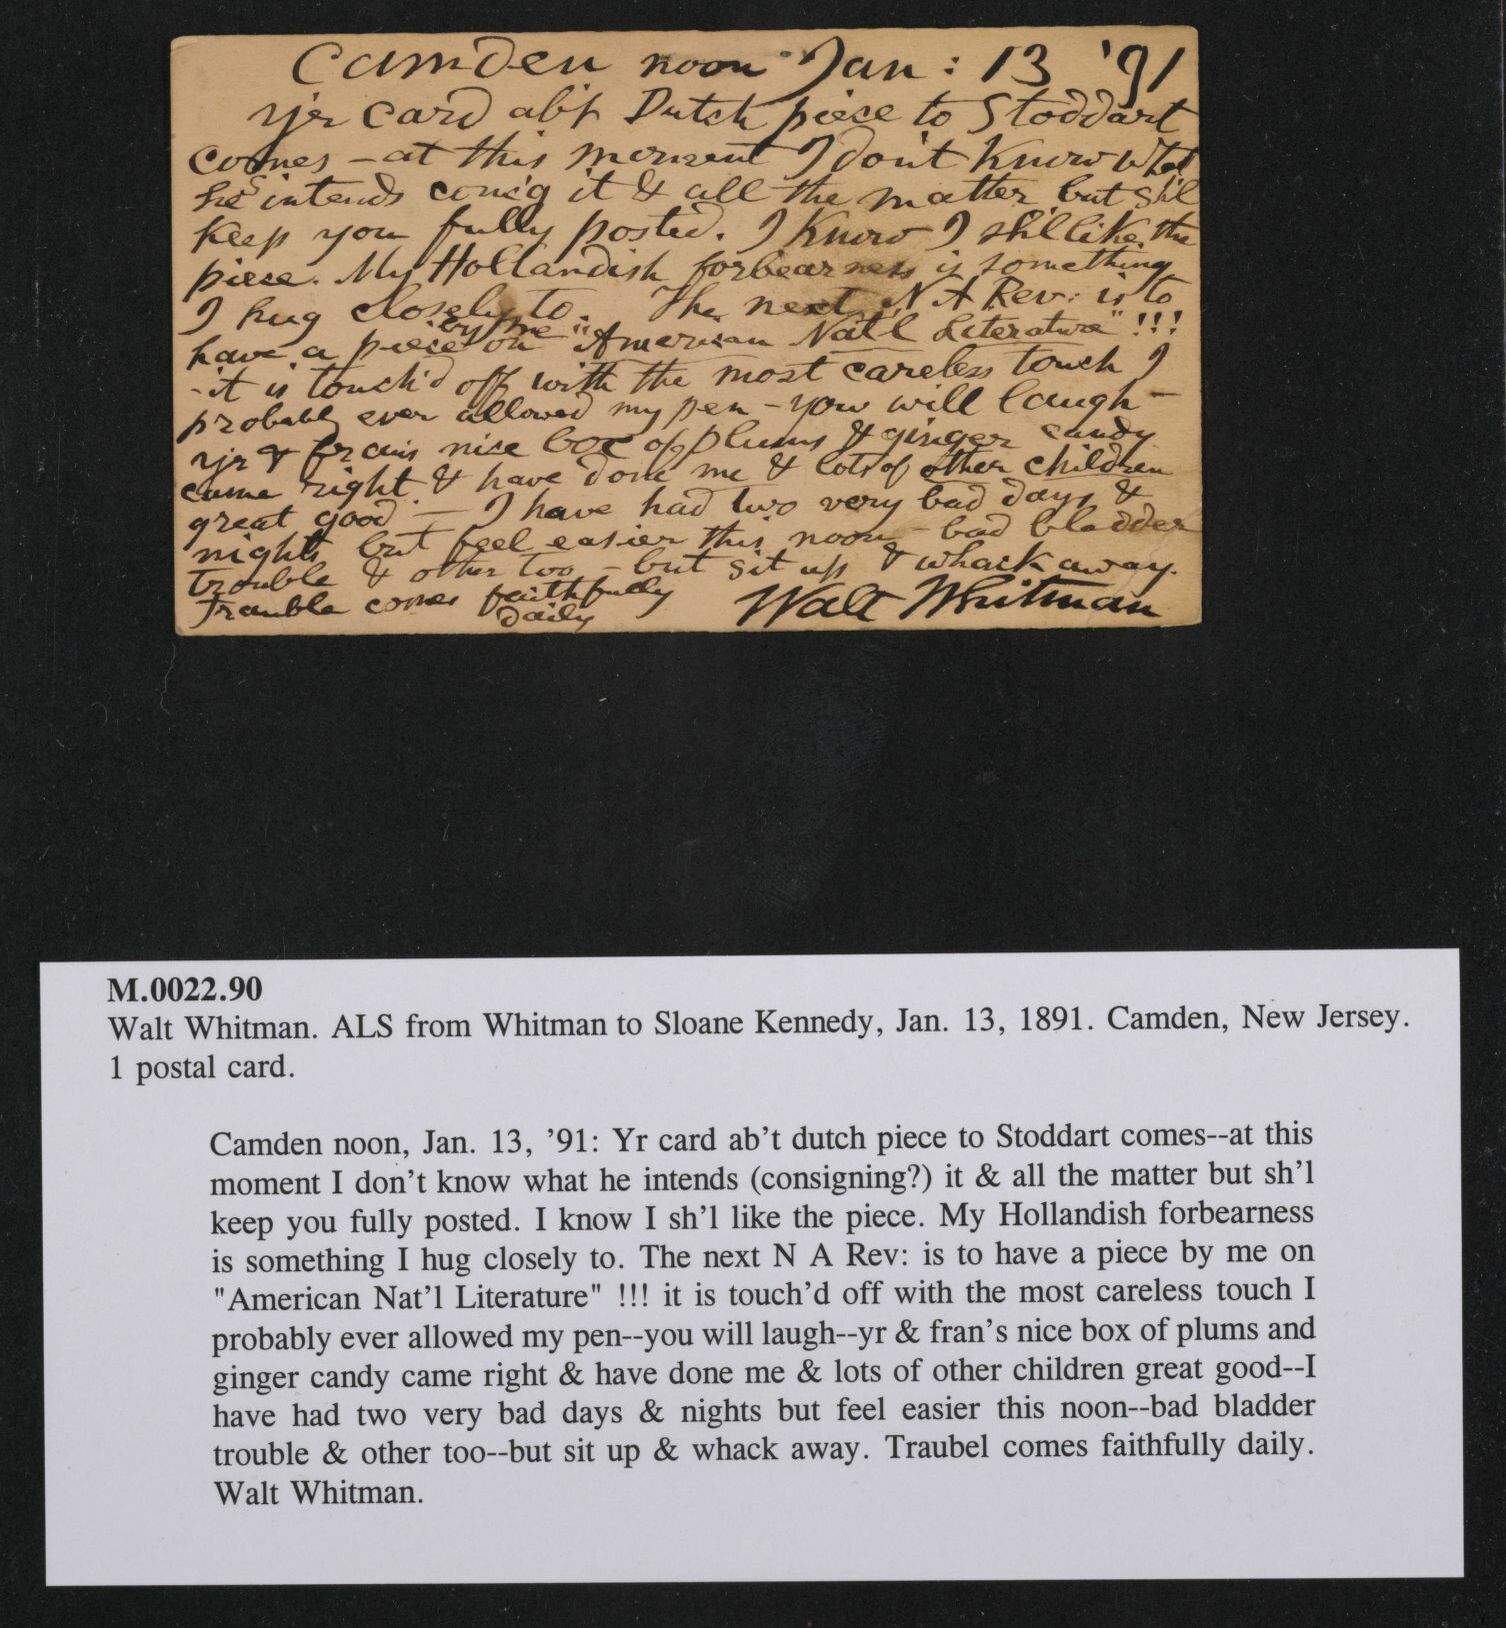 Camden noon Jan: 13 '91
Yr card ab't Dutch piece to Stoddart
comes – at this moment I don't know what
he intends conc'g it & all the matter but sh'l
keep you fully posted. I know I sh'l like the
piece. My Hollandish forbearness is something
I hug closely to. The next N A Rev: is to
have a piece by me on "American Nat'l Literature" !!!
- it is touch'd off with the most careless touch I
probably ever allowed my pen – you will laugh –
yr & fran's nice box of plums & ginger candy
came right & have done me & lots of other children
great good – I have had two very bad days &
nights but feel easier this noon – bad bladder
trouble & other too – but sit up & whack away.
Traubel comes faithfully
daily
Walt Whitman
M.0022.90
Walt Whitman. ALS from Whitman to Sloane Kennedy, Jan. 13, 1891. Camden, New Jersey.
1 postal card.
Camden noon, Jan. 13, '91: Yr card ab't dutch piece to Stoddart comes--at this
moment I don't know what he intends (consigning?) it & all the matter but sh'l
keep you fully posted. I know I sh'l like the piece. My Hollandish forbearness
is something I hug closely to. The next N A Rev: is to have a piece by me on
"American Nat'l Literature" !!! it is touch'd off with the most careless touch I
probably ever allowed my pen--you will laugh--yr & fran's nice box of plums and
ginger candy came right & have done me & lots of other children great good--I
have had two very bad days & nights but feel easier this noon--bad bladder
trouble & other too--but sit up & whack away. Traubel comes faithfully daily.
Walt Whitman.